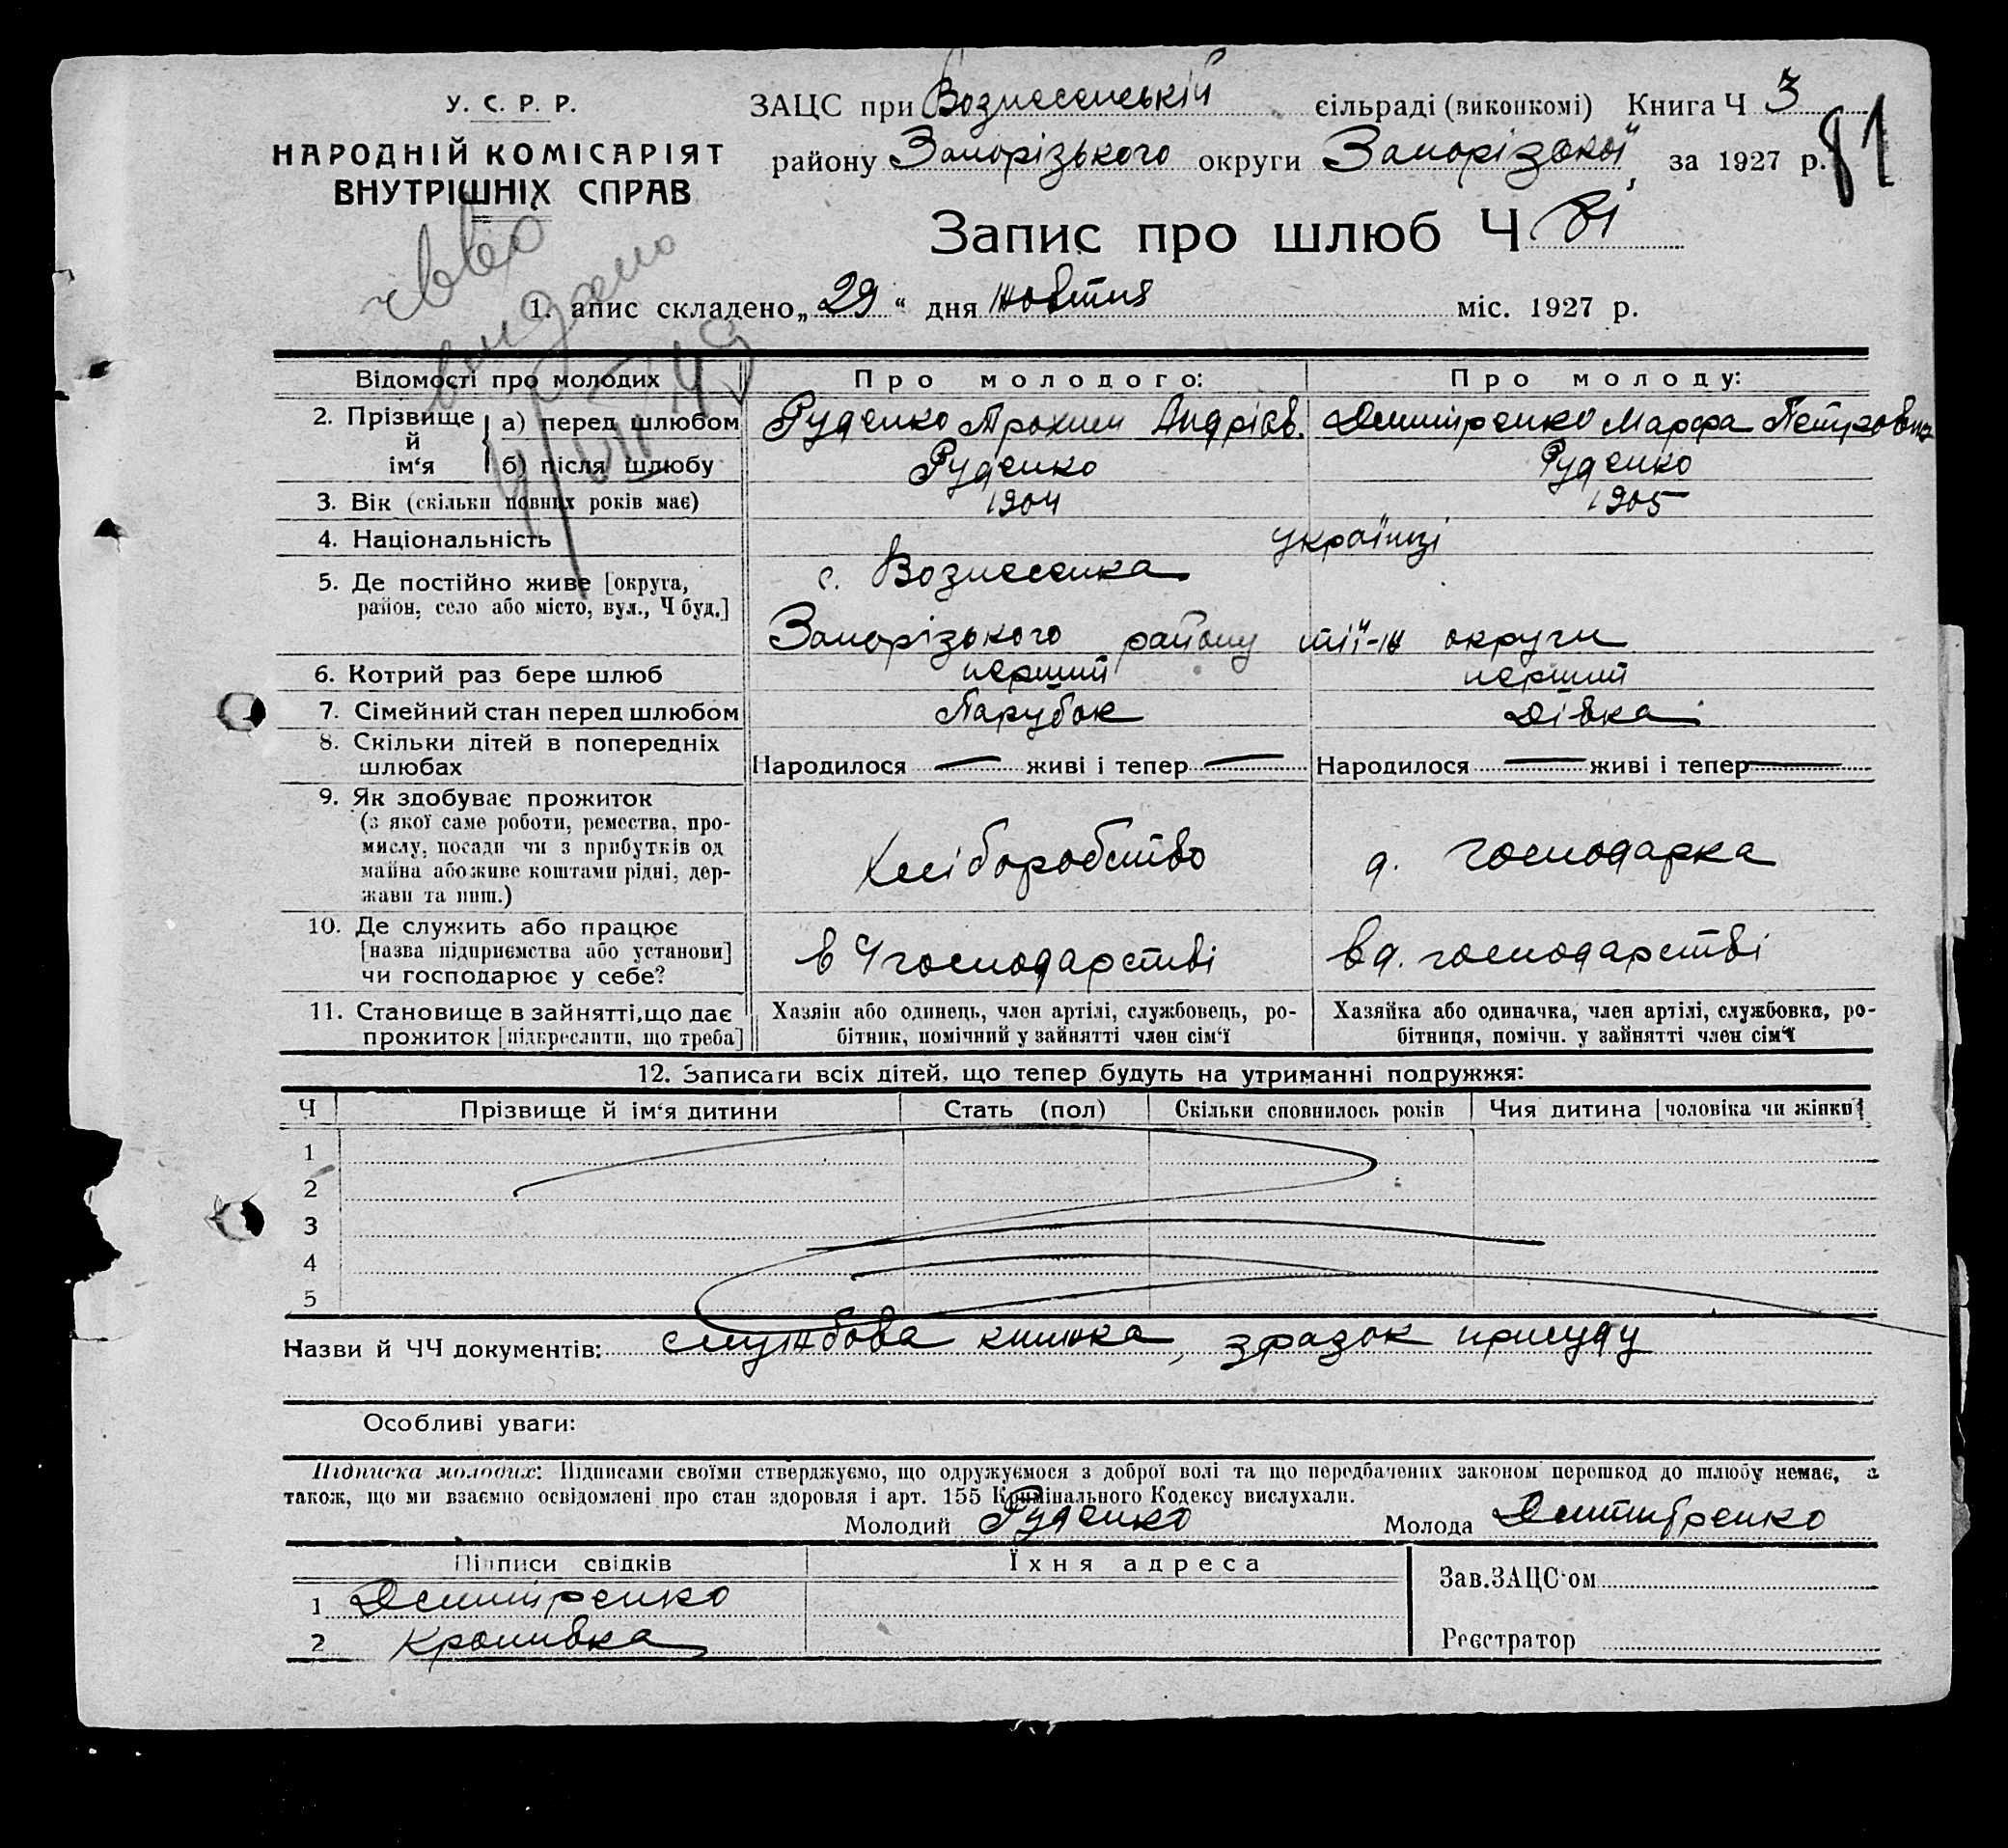 У. С. Р. Р.
НАРОДНІЙ КОМІСАРІЯТ
ВНУТРІШНІХ СПРАВ
ЗАЦС при Вознесенській сільраді (виконкомі) Книга Ч 3
району Запорізького округи Запорізької, за 1927 р.
81
Запис про шлюб Ч 81
1. апис складено „ 29 “ дня жовтня міс. 1927 р.
видано
Відомості про молодих Про молодого: Про молоду:
2. Прізвище й ім‘я а) перед шлюбом Руденко Трохим Андріев. Дмитренко Марфа Петровна
б) після шлюбу Руденко Руденко
3. Вік (скільки повних років має) 1904 1905
4. Національність українці
5. Де постійно живе [округа, район, село або місто, вул., Ч буд.] с. Вознесенка
Запорізького району тії-ж округи
6. Котрий раз бере шлюб перший перший
7. Сімейний стан перед шлюбом Парубок Дівка
8. Скільки дітей в попередніх шлюбах Народилося — живі і тепер — Народилося — живі і тепер —
9. Як здобуває прожиток
(з якої саме роботи, ремества, про-
мислу, посади чи з прибутків од
майна або живе коштами рідні, дер-
жави та инш.)
хліборобство д. господарка
10. Де служить або працює
[назва підприємства або установи]
чи господарює у себе?
в Ч господарстві в д. господарстві
11. Становище в зайнятті, що дає
прожиток [підкреслити, що треба]
Хазяїн або одинець, член артілі, службовець, ро-
бітник, помічний у зайнятті член сім‘ї
Хазяйка або одиначка, член артілі, службовка, ро-
бітниця, помічн. у зайнятті член сім‘ї
12. Записати всіх дітей, що тепер будуть на утриманні подружжя:
Ч Прізвище й ім‘я дитини Стать (пол) Скільки сповнилось років Чия дитина [чоловіка чи жінки]
1
2
3
4
5
Назви й ЧЧ документів: службова книжка, зразок присуду
Особливі уваги:
Підписка молодих: Підписами своїми стверджуємо, що одружуємося з доброї волі та що передбачених законом перешкод до шлюбу немає, а
також, що ми взаємно освідомлені про стан здоровля і арт. 155 Кримінального Кодексу вислухали.
Молодий Руденко Молода Дмитренко
Підписи свідків Їхня адреса
Зав. ЗАЦС‘ом
1 Дмитренко
2 Кропивка
Реєстратор